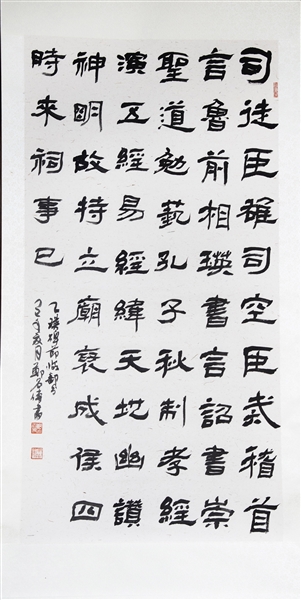 司徒臣雄司空臣戒稽首
言魯前相瑛書言詔書崇
聖道勉藝孔子秋制孝經
演五經易經緯天地幽讚
神明故特立廟褒成侯四
時來祠事已
乙瑛碑節臨部分
午夏月鄭石書